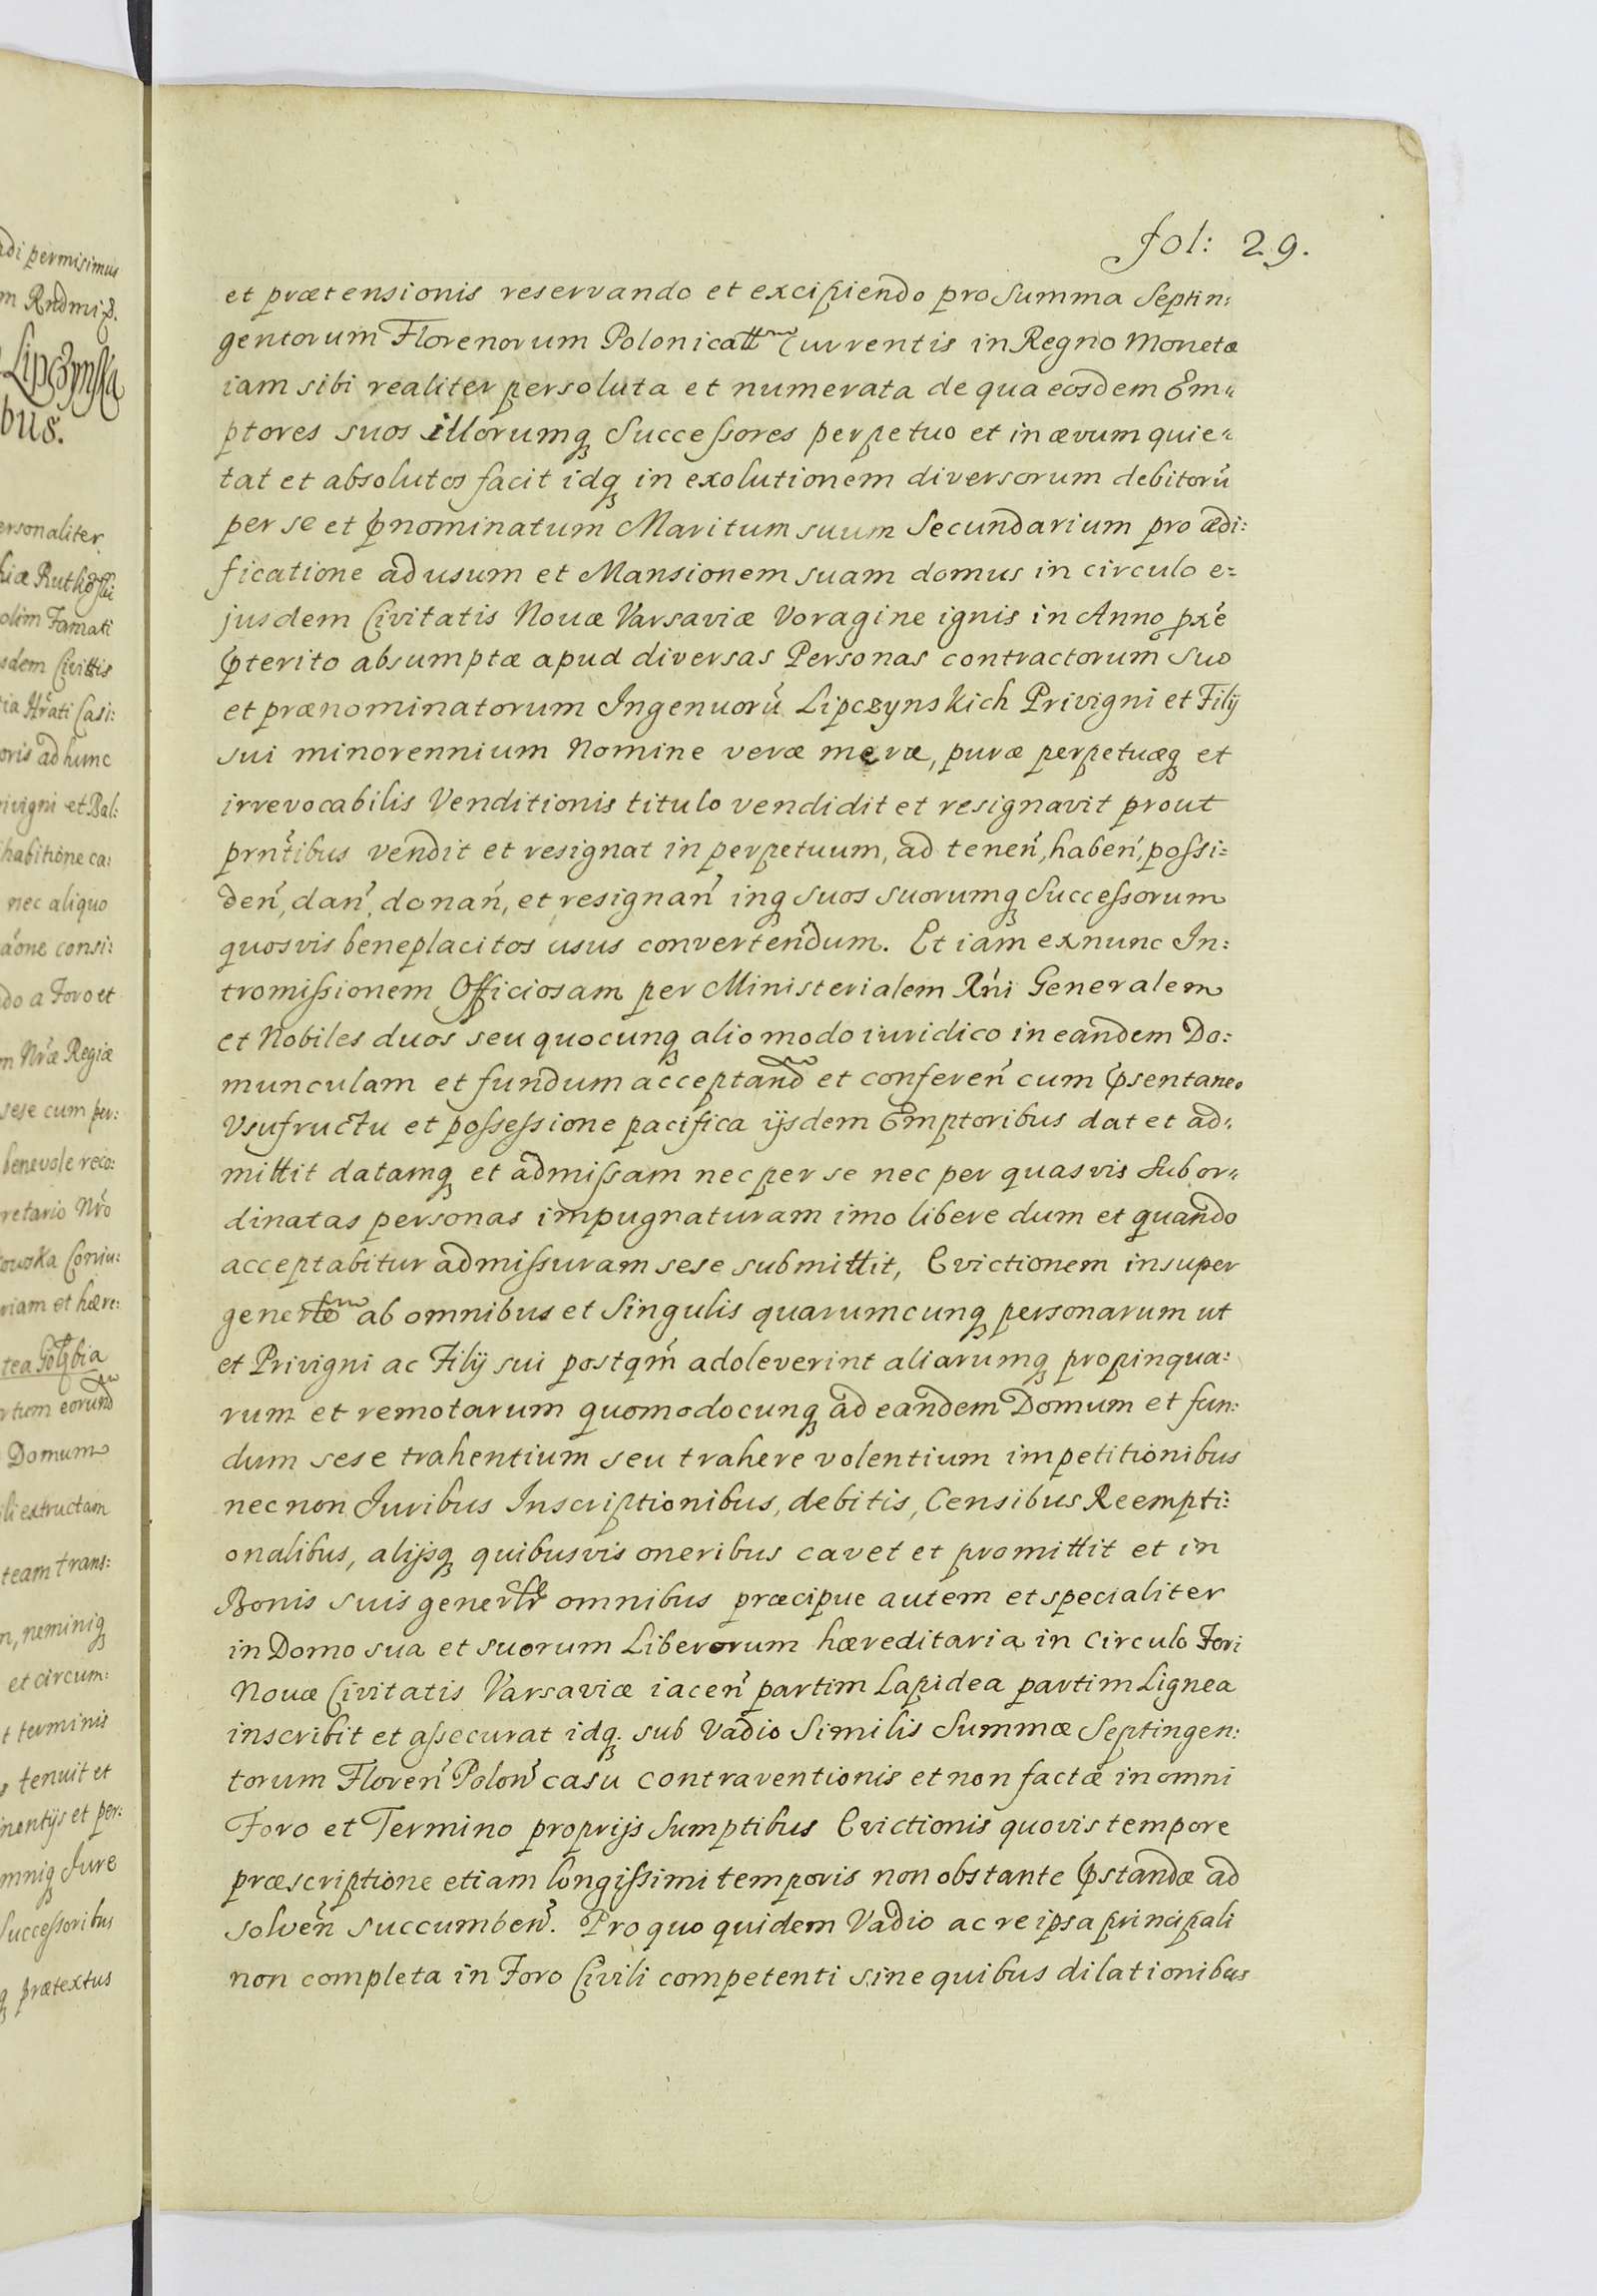 fol: 29.
et prætensionis reservando et excipiendo pro Summa Septin:
gentorum Florenorum Polonicatt Currentis in Regno Monetæ
iam sibi realiter persoluta et numerata de qua eosdem Em:
ptores suos illorumq Successores perpetuo et in ævum quie:
tat et absolutos facit idq in exolutionem diversorum debitorũ
per se et pnominatum Maritum suum Secundarium pro ædi:
ficatione ad usum et Mansionem suam domus in circulo e:
jusdem Civitatis Novæ Varsaviæ Voragine ignis in Anno
pterito absumptæ apud diversas Personas contractorum suo
et prænominatorum Ingenuorũ Lipczynskich Privigni et Filij
sui minorennium Nomine veræ meræ, puræ perpetuæq et
irrevocabilis Venditionis titulo vendidit et resignavit prout
prntibus vendit et resignat in perpetuum, ad tenen̄, haben̄, possi:
den̄, dan̄, donan̄, et resignan̄ inq suos suorumq Successorum
quosvis beneplacitos usus convertendum. Et iam exnunc In:
tromissionem Officiosam per Ministerialem Rñi Generalem
et Nobiles duos seu quocunq alio modo iuridico in eandem Do:
munculam et fundum acceptand et conferen̄ cum psentaneo
Vsufructu et possessione pacifica ijsdem Emptoribus dat et ad:
mittit datamq et admissam nec per se nec per quasvis Subor:
dinatas personas impugnaturam imo libere dum et quando
acceptabitur admissuram sese submittit, Evictionem insuper
generlē ab omnibus et Singulis quarumcunq personarum ut
et Privigni ac Filij sui postqm̄ adoleverint aliarumq propinqua:
rum et remotarum quomodocunq ad eandem Domum et fun:
dum sese trahentium seu trahere volentium impetitionibus
nec non Juribus Inscriptionibus, debitis, Censibus Reempti:
onalibus, alijsq quibusvis oneribus cavet et promittit et in
Bonis suis generlr omnibus præcipue autem et specialiter
in Domo sua et suorum Liberorum hæreditaria in Circulo Fori
Novæ Civitatis Varsaviæ iacen̄ partim Lapidea partim Lignea
inscribit et assecurat idq. sub Vadio Similis Summæ Septingen:
torum Floren̄ Polon̄ casu contraventionis et non factæ in omni
Foro et Termino proprijs Sumptibus Evictionis quovis tempore
præscriptione etiam longissimi temporis non obstante pstandæ ad
solven̄ succumben̄. Pro quo quidem Vadio ac re ipsa principali
non completa in Foro Civili competenti sine quibus dilationibus